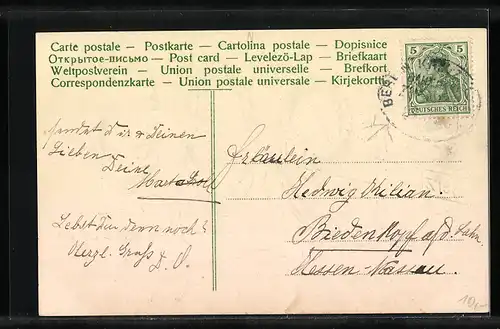 Carte postale – Postkarte – Cartolina postale – Dopisnice
Открытое-письмо – Post card – Levelező-Lap – Briefkaart
Weltpostverein – Union postale universelle – Brefkort
Correspondenzkarte – Union postale universale – Kirjekortti
5 5
DEUTSCHES REICH
sendet Dir & Deinen
Lieben
Deine
Fräulein
Hedwig Kilian.
Biedenkopf a/d. Lahn
Hessen-Nassau.
Lebst Du denn noch?
Herzl. Gruß D. O.
10,-